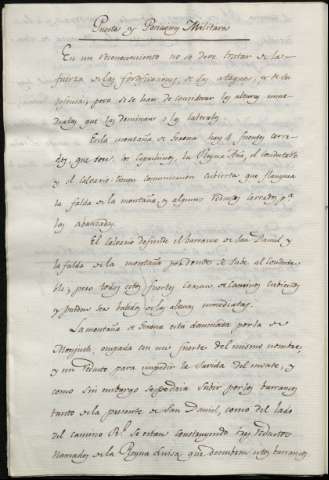 Puestos y Posiciones Militares
En un reconocimiento no se debe tratar de la
fuerza de las fortificaciones, de los ataques, ò de su
defensa; pero se se han de considerar las alturas inme
diatas que los dominan ò los laterales
En la montaña de Gerona hay 4 fuertes corre
dos, que son: los Capuchinos, la Reyna Ana, el Condestable
y el Calvario: tienen comunicacion cubierta que flanquea
la falda de la montaña y algunos reductos cerrados pª
los abanzados.
El Calvario defiende el barranco de San Daniel y
la falda de la montaña por donde se sube al Condesta
ble; pero todos estos fuertes carecen de caminos cubiertos
y pueden ser batidos de las alturas inmediatas.
La montaña de Gerona esta dominada por la de
Monjuich, ocupada con un fuerte del mismo nombre,
y un reducto para impedir la subida del oeste, y
como sin embargo se podria subir por los barrancos
tanto de la parte de San Daniel, como del lado
del camino Rl. se estan construyendo tres reductos
llamados de la Reyna Luisa que descubren estos barrancos